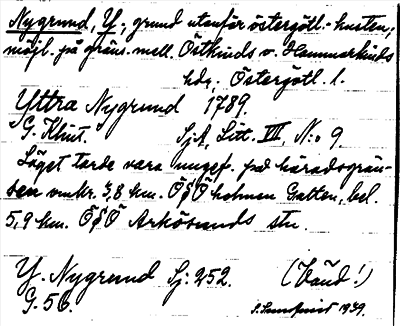 Nygrund, Y., grund utanför östergötl. kusten,
möjl. på gräns mell. Östkinds o. Hammarkinds
hdr, Östergötl. l.
Yttra Nygrund 1789.
G. Klint. Sjk, Litt. VII, N:o 9.
Läget torde vara ungef. på häradsgrän-
sen omkr. 3,8 km. ÖSÖ holmen Gratten, bel.
5,9 km. ÖSÖ Arkösunds stn.
Y. Nygrund Sj: 252. (Vaud!)
G. 56. 1939.